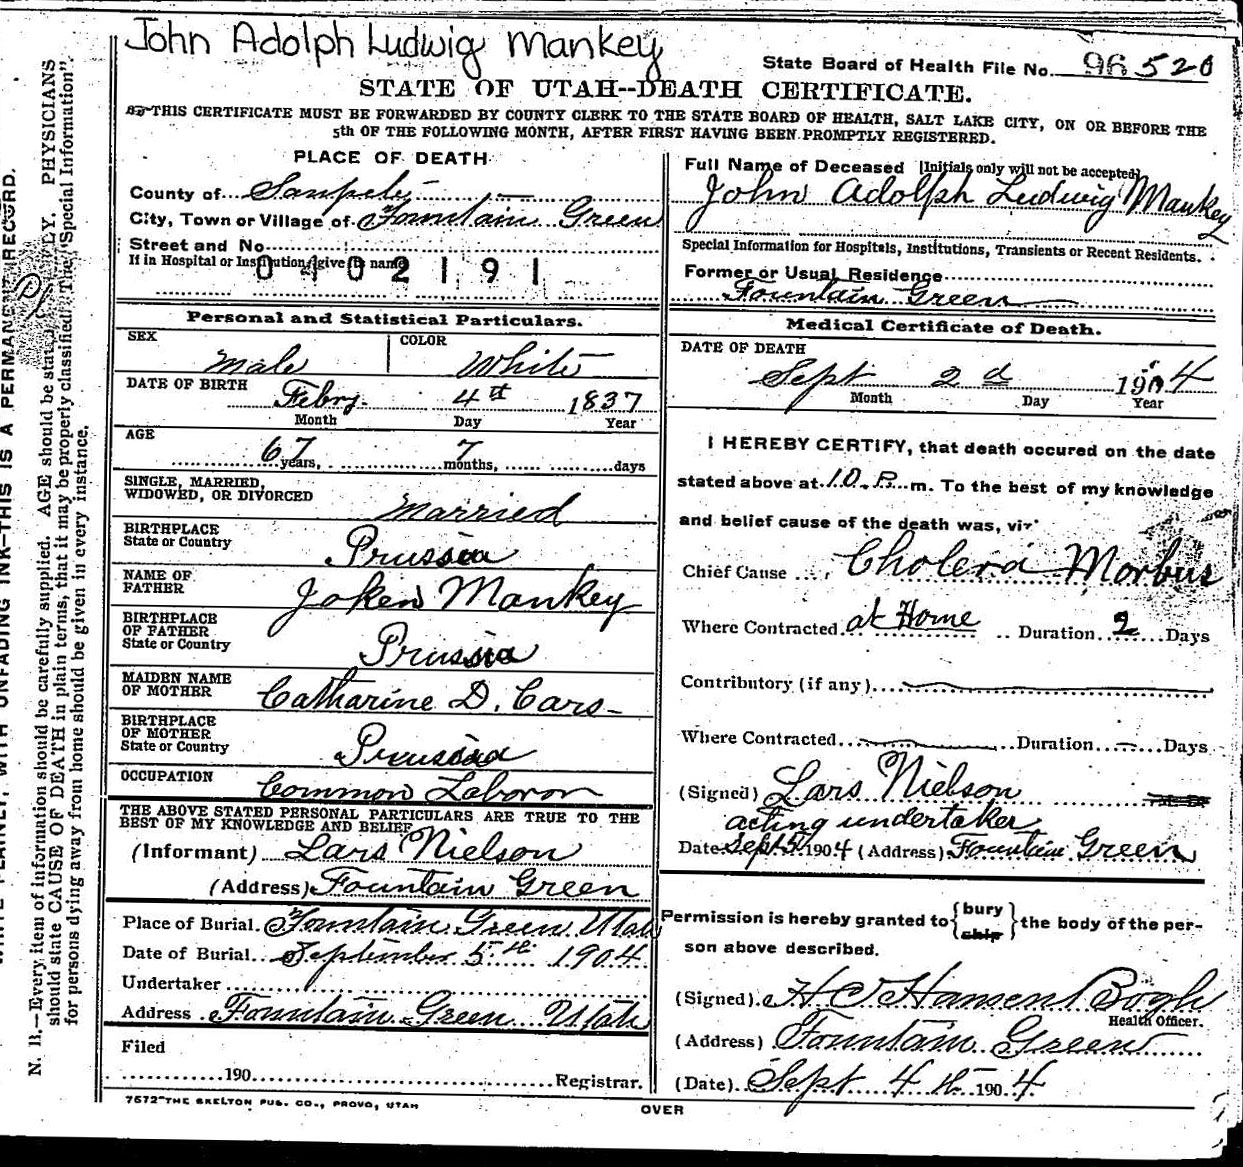 John Adolph Ludwig Mankey
State Board of Health File No. 96520
STATE OF UTAH--DEATH CERTIFICATE.
THIS CERTIFICATE MUST BE FORWARDED BY COUNTY CLERK TO THE STATE BOARD OF HEALTH, SALT LAKE CITY, ON OR BEFORE THE
5th OF THE FOLLOWING MONTH, AFTER FIRST HAVING BEEN PROMPTLY REGISTERED.
PLACE OF DEATH
County of Sanpete
City, Town or Village of Fountain Green
Street and No.
If in Hospital or Institution, give its name
0402191
Personal and Statistical Particulars.
SEX
Male
COLOR
White
DATE OF BIRTH
Febry. 4th 1837
Month Day Year
AGE
67 years, 7 months, days
SINGLE, MARRIED,
WIDOWED, OR DIVORCED
Married
BIRTHPLACE
State or Country
Prussia
NAME OF
FATHER
Joken Mankey
BIRTHPLACE
OF FATHER
State or Country
Prussia
MAIDEN NAME
OF MOTHER
Catharine D. Cars
BIRTHPLACE
OF MOTHER
State or Country
Prussia
OCCUPATION
Common Laboror
THE ABOVE STATED PERSONAL PARTICULARS ARE TRUE TO THE
BEST OF MY KNOWLEDGE AND BELIEF
(Informant) Lars Nielson
(Address) Fountain Green
Place of Burial Fountain Green Utah
Date of Burial September 5th 1904
Undertaker
Address Fountain Green Utah
Filed
190 Registrar.
7572-THE SKELTON PUB. CO., PROVO, UTAH
Full Name of Deceased [Initials only will not be accepted]
John Adolph Ludwig Mankey
Special Information for Hospitals, Institutions, Transients or Recent Residents.
Former or Usual Residence
Fountain Green
Medical Certificate of Death.
DATE OF DEATH
Sept 2d 1904
Month Day Year
I HEREBY CERTIFY, that death occured on the date
stated above at 10 P. m. To the best of my knowledge
and belief cause of the death was, viz:
Chief Cause Cholera Morbus
Where Contracted at Home Duration 2 Days
Contributory (if any)
Where Contracted Duration Days
(Signed) Lars Nielson
acting undertaker
Date Sept 5 1904 (Address) Fountain Green
Permission is hereby granted to {bury
ship} the body of the per-
son above described.
(Signed) H C Hansen Bogh
Health Officer.
(Address) Fountain Green
(Date) Sept 4th 1904
OVER
WITH UNFADING INK—THIS IS A PERMANENT RECORD.
N. B.—Every item of information should be carefully supplied. AGE should be PHYSICIANS
should state CAUSE OF DEATH in plain terms, that it may be properly classified. The "Special Information"
for persons dying away from home should be given in every instance.